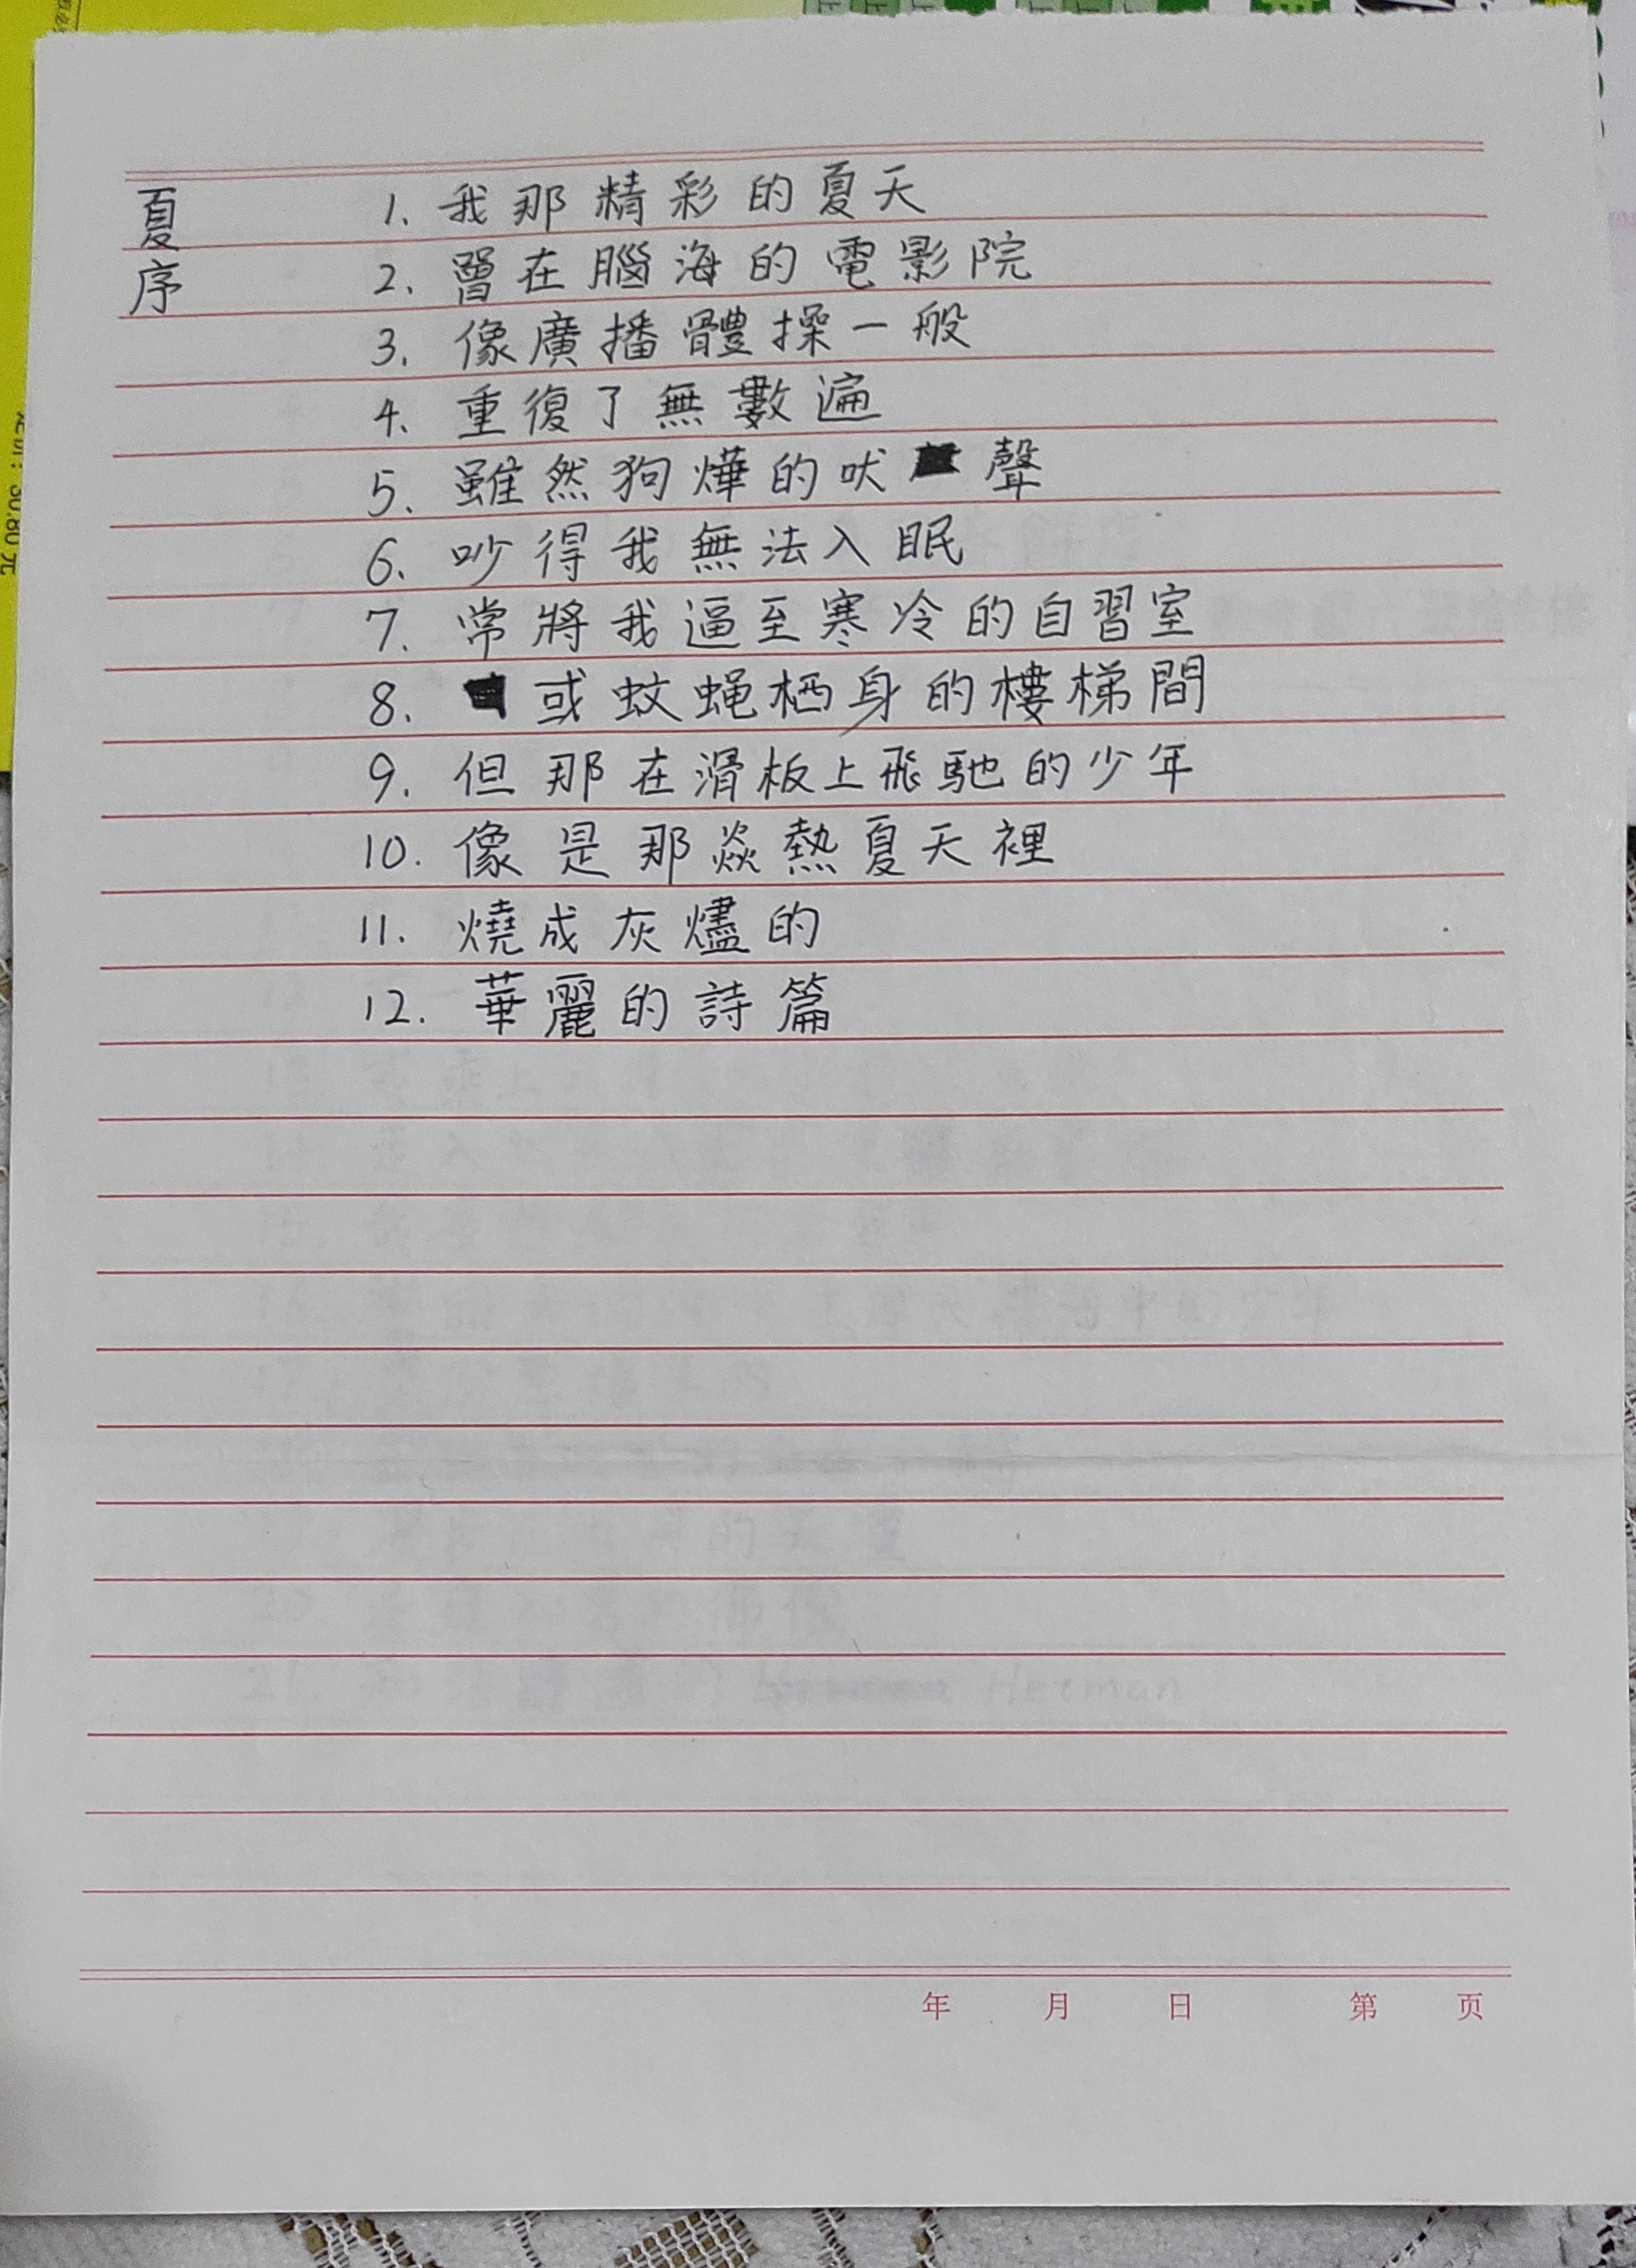 夏序
1. 我那精彩的夏天
2. 曾在腦海的電影院
3. 像廣播體操一般
4. 重復了無數遍
5. 雖然狗燁的吠聲
6. 吵得我無法入眠
7. 常將我逼至寒冷的自習室
8. 或蚊蝇栖身的樓梯間
9. 但那在滑板上飛馳的少年
10. 像是那焱熱夏天裡
11. 燒成灰燼的
12. 華麗的詩篇
年 月 日 第 页